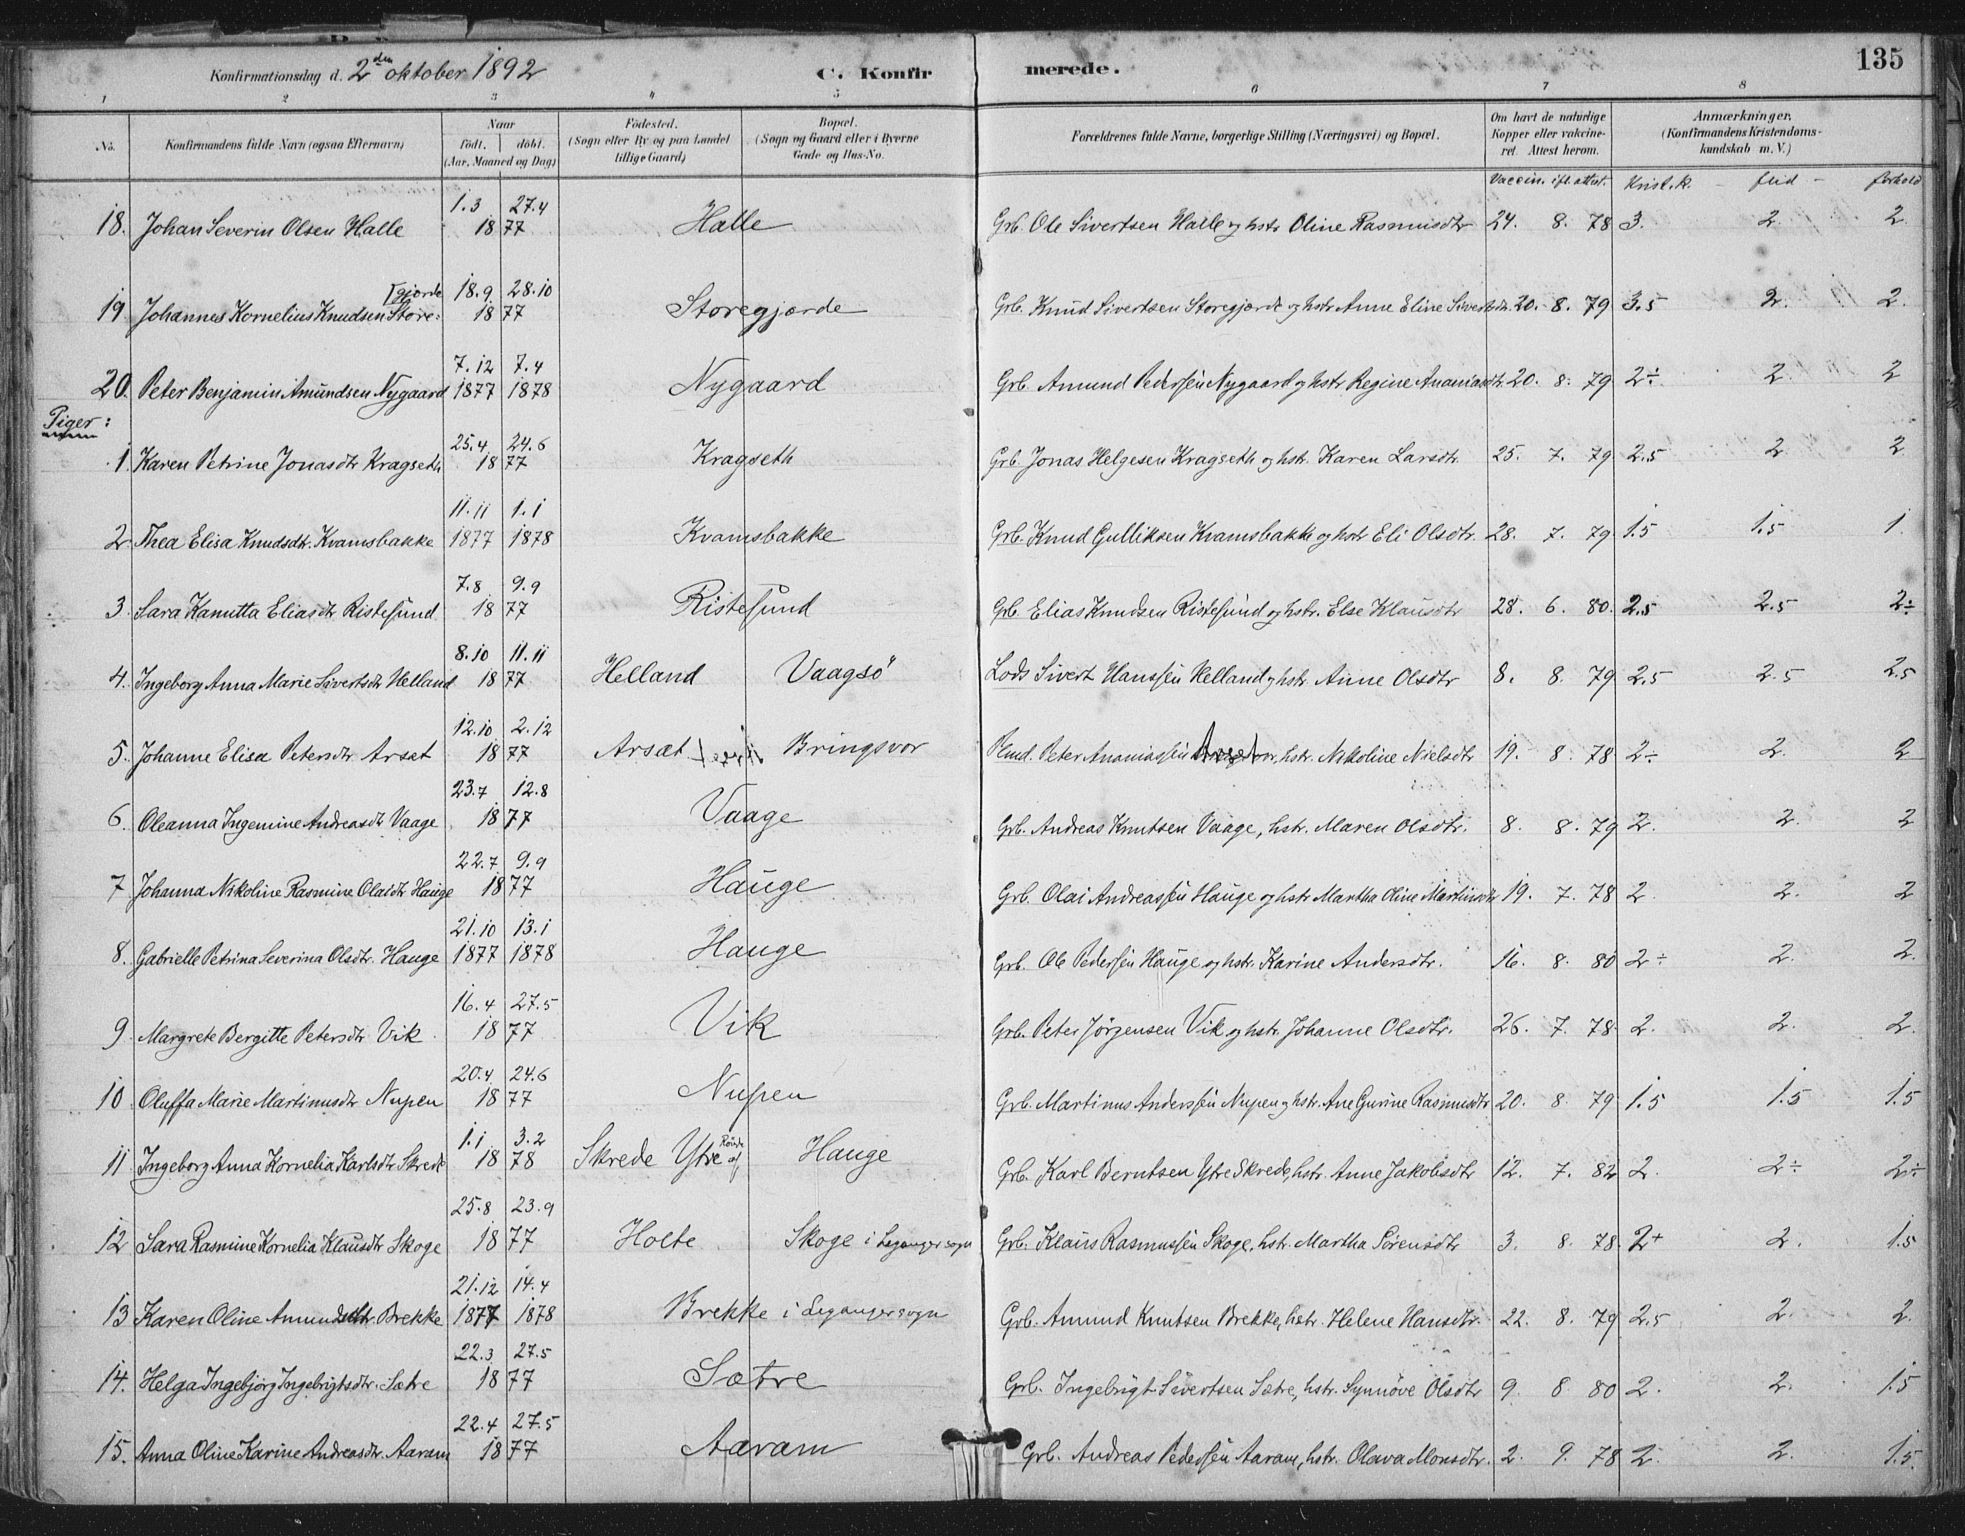 135
Konfirmationsdag d. 2den oktober 1892 C. Konfirmerede.
1 2 3 4 5 6 7 8
No. Konfirmandens fulde Navn (ogsaa Efternavn) Naar födt. döbt. (Aar, Maaned og Dag) Födested. (Sogn eller By og paa Landet tillige Gaard) Bopæl. (Sogn og Gaard eller i Byerne Gade og Hus-No. Forældrenes fulde Navne, borgerlige Stilling (Næringsvei) og Bopæl. Om havt de naturlige Kopper eller vakcineret. Attest herom. Anmærkninger. (Konfirmandens Kristendomskundskab m. V.)
Vaccin. ifl. attest. Krist.k. - flid - forhold
18. Johan Severin Olsen Halle 1.3 27.4 1877 Halle Grb. Ole Sivertsen Halle og hstr Oline Rasmusdtr 24. 8. 78 3. 2. 2.
19 Johannes Kornelius Knudsen Storegjærde 18.9. 28.10 1877 Storegjærde Grb. Knud Sivertsen Storegjærde og hstr Anne Eline Sivertsdtr. 20. 8. 79 3.5 2. 2.
20. Peter Benjamin Amundsen Nygaard 7.12 1877 7.4 1878 Nygaard Grb. Amund Pedersen Nygaard og hstr Regine Ananiasdtr. 20. 8. 79 2÷ 2. 2
Piger:
1. Karen Petrine Jonasdtr Kragseth 25.4 24.6 1877 Kragseth Grb. Jonas Helgesen Kragseth og hstr. Karen Larsdtr. 25. 7. 79 2.5 2 2
2. Thea Elisa Knudsdtr. Kvamsbakke 11.11 1877 1.1 1878 Kvamsbakke Grb. Knud Gulliksen Kvamsbakke og hstr Eli Olsdtr. 28. 7. 79 1.5 1.5 1.
3. Sara Kanutta Eliasdtr Ristesund 7.8 9.9 1877 Ristesund Grb. Elias Knudsen Ristesund og hstr. Else Klausdtr 28. 6. 80. 2.5 2.5 2÷
4. Ingeborg Anna Marie Sivertsdtr Helland 8.10 11.11 1877 Helland Vaagsö Lods Sivert Hanssen Helland og hstr. Anne Olsdtr 8. 8. 79 2.5 2.5 2.5
5. Johanne Elisa Petersdtr Arsæt 12.10 2.12 1877 Arsæt Bringsvor Peter Ananiassen hstr. Nikoline Nielsdtr 19. 8. 78 2÷ 2. 2
6. Oleanna Ingemine Andreasdtr Vaage 23.7 12.8 1877 Vaage Grb. Andreas Knutsen Vaage, hstr. Maren Olsdtr. 8. 8. 79 2. 2. 2
7 Johanna Nikoline Rasmine Olaidtr Hauge 22.7 9.9 1877 Hauge Grb. Olai Andreassen Hauge og hstr Martha Oline Martinsdtr 19. 7. 78 2 2. 2
8. Gabrielle Petrina Severina Olsdtr. Hauge 21.10 1877 13.1 1878 Hauge Grb. Ole Pedersen Hauge og hstr. Karine Andersdtr. 16. 8. 80 2÷ 2. 2.
9. Margrete Bergitte Petersdtr. Vik 16.4 27.5 1877 Vik Grb. Peter Jörgensen Vik og hstr. Johanne Olsdtr. 26. 7. 78. 2. 2. 2.
10 Oluffa Marie Martinusdtr Nupen 20.4 24.6 1877 Nupen Grb. Martinus Anderssen Nupen og hstr. Ane Gurine Rasmusdtr 20. 8. 79 1.5 1.5 1.5
11 Ingeborg Anna Kornelia Karlsdtr Skrede 1.1 3.2 1878 Skrede Ytre af Hauge Grb. Karl Berntsen Ytre Skrede, hstr. Anne Jakobsdtr 12. 7. 82 2. 2÷ 2÷
12 Sara Rasmine Kornelia Klausdtr Skoge 25.8 23.9 1877 Holte Skoge i Leganger sogn Grb. Klaus Rasmussen Skoge, hstr. Martha Sörensdtr 3. 8. 78. 2+ 2. 1.5
13 Karen Oline Amundsdtr. Brekke 21.12 1877 14.4 1878 Brekke i Leganger sogn Grb. Amund Knutsen Brekke, hstr. Helene Hansdtr. 22. 8. 79 2.5 2. 2.
14. Helga Ingebjörg Ingebrigtsdtr. Sætre 22.3 27.5 1877 Sætre Grb. Ingebrigt Sivertsen Sætre, hstr. Synnöve Olsdtr 9. 8 80 2. 2. 1.5
15. Anna Oline Karine Andreasdtr. Aaram 22.4 27.5 1877 Aaram Grb. Andreas Pedersen Aaram, hstr. Olava Monsdtr. 2. 9. 78 2. 2. 1.5.